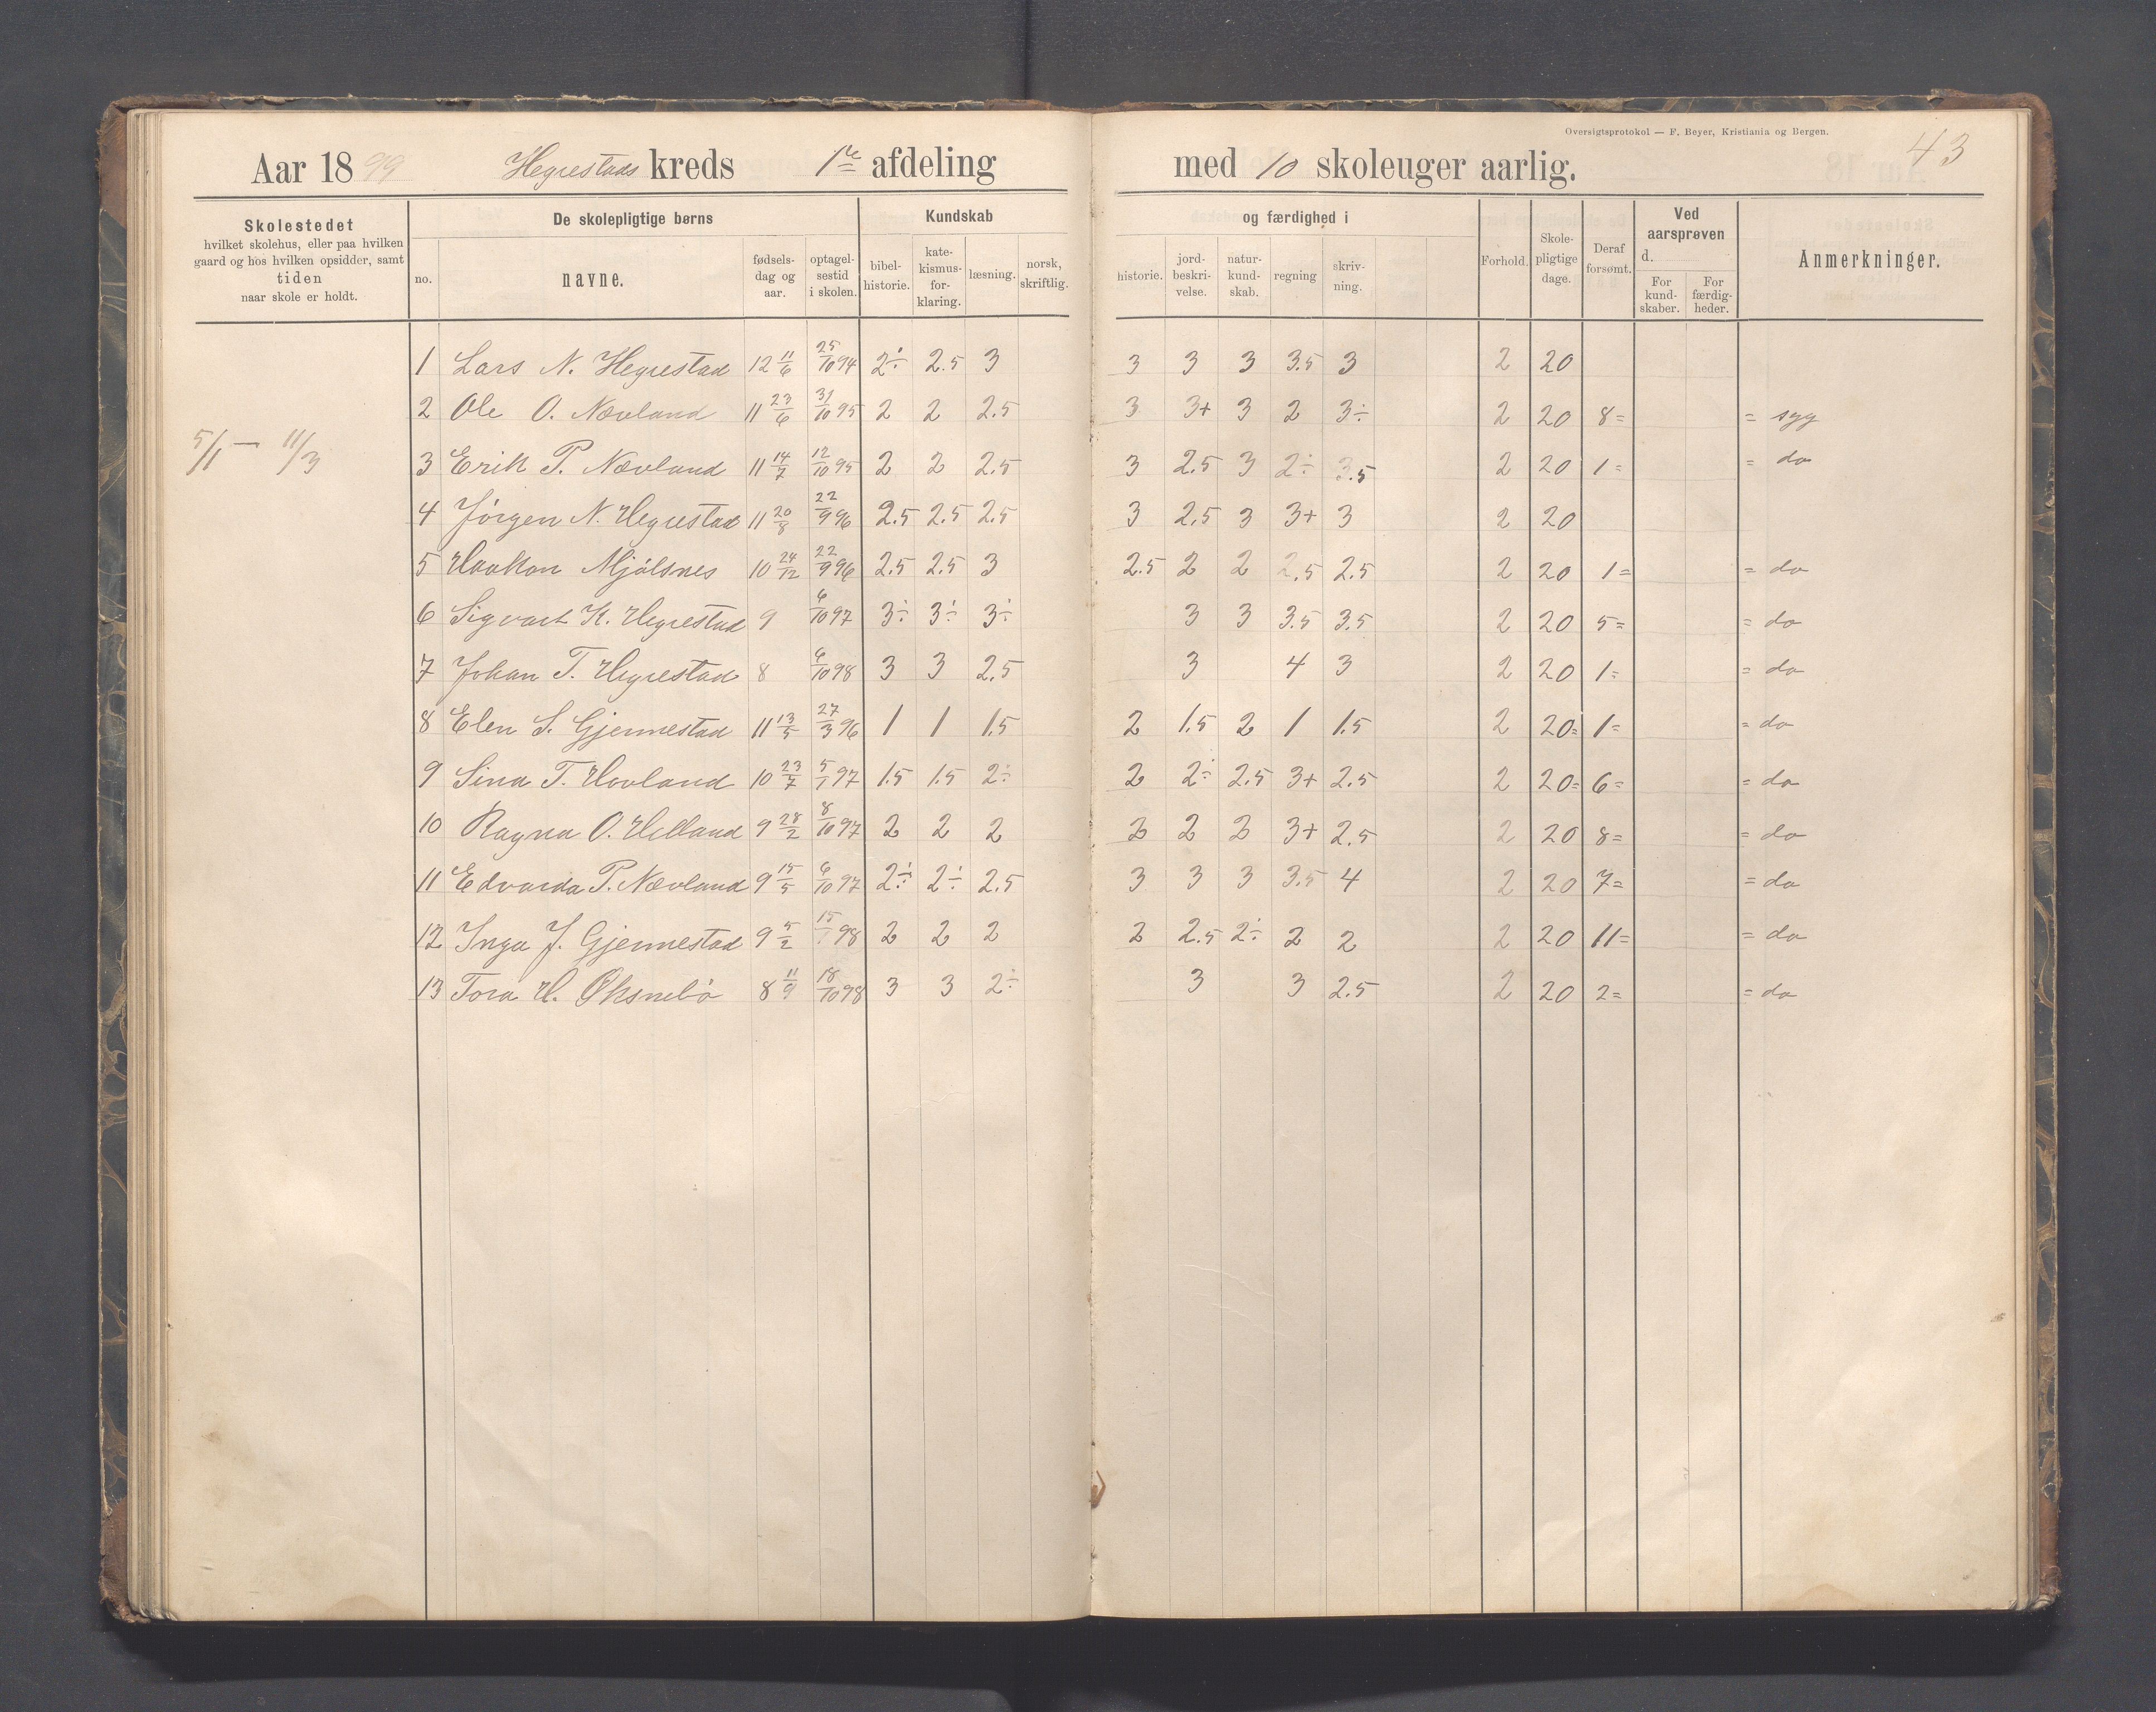 Oversigtsprotokol — F. Beyer, Kristiania og Bergen.
43
Aar 1899 Hegrestads kreds 1ste afdeling med 10 skoleuger aarlig.
Skolestedet
hvilket skolehus, eller paa hvilken
gaard og hos hvilken opsidder, samt
tiden
naar skole er holdt.
De skolepligtige børns
no.
navne.
fødsels-
dag og
aar.
optagel-
sestid
i skolen.
Kundskab
bibel-
historie.
kate-
kismus-
for-
klaring.
læsning.
norsk,
skriftlig.
og færdighed i
historie.
jord-
beskri-
velse.
natur-
kund-
skab.
regning
skriv-
ning.
Forhold.
Skole-
pligtige
dage.
Deraf
forsømt.
Ved
aarsprøven
d.
For
kund-
skaber.
For
færdig-
heder.
Anmerkninger.
5/1 — 11/3
1 Lars N. Hegrestad 12 11/6 25/10 94 2÷ 2.5 3 3 3 3 3.5 3 2 20
2 Ole O. Nævland 11 23/6 31/10 95 2 2 2.5 3 3+ 3 2 3÷ 2 20 8= = syg
3 Erik P. Nævland 11 14/7 12/10 95 2 2 2.5 3 2.5 3 2÷ 3.5 2 20 1= = do
4 Jörgen N. Hegrestad 11 20/8 22/9 96 2.5 2.5 2.5 3 2.5 3 3+ 3 2 20
5 Haakon Mjölsnes 10 24/12 22/9 96 2.5 2.5 3 2.5 2 2 2.5 2.5 2 20 1= = do
6 Sigvart K. Hegrestad 9 6/10 97 3÷ 3÷ 3÷ 3 3 3.5 3.5 2 20 5= = do
7 Johan T. Hegrestad 8 6/10 98 3 3 2.5 3 4 3 2 20 1= = do
8 Elen S. Gjennestad 11 13/5 27/3 96 1 1 1.5 2 1.5 2 1 1.5 2 20= 1= = do
9 Sina T. Hovland 10 23/7 5/1 97 1.5 1.5 2÷ 2 2÷ 2.5 3+ 2.5 2 20= 6= = do
10 Ragna O. Helland 9 28/2 8/10 97 2 2 2 2 2 2 3+ 2.5 2 20 8= = do
11 Edvarda P. Nævland 9 15/5 6/10 97 2÷ 2÷ 2.5 3 3 3 3.5 4 2 20 7= = do
12 Inga J. Gjennestad 9 5/2 15/1 98 2 2 2 2 2.5 2÷ 2 2 2 20 11= = do
13 Tora H. Øksnebö 8 11/9 18/10 98 3 3 2÷ 3 3 2.5 2 20 2= = do